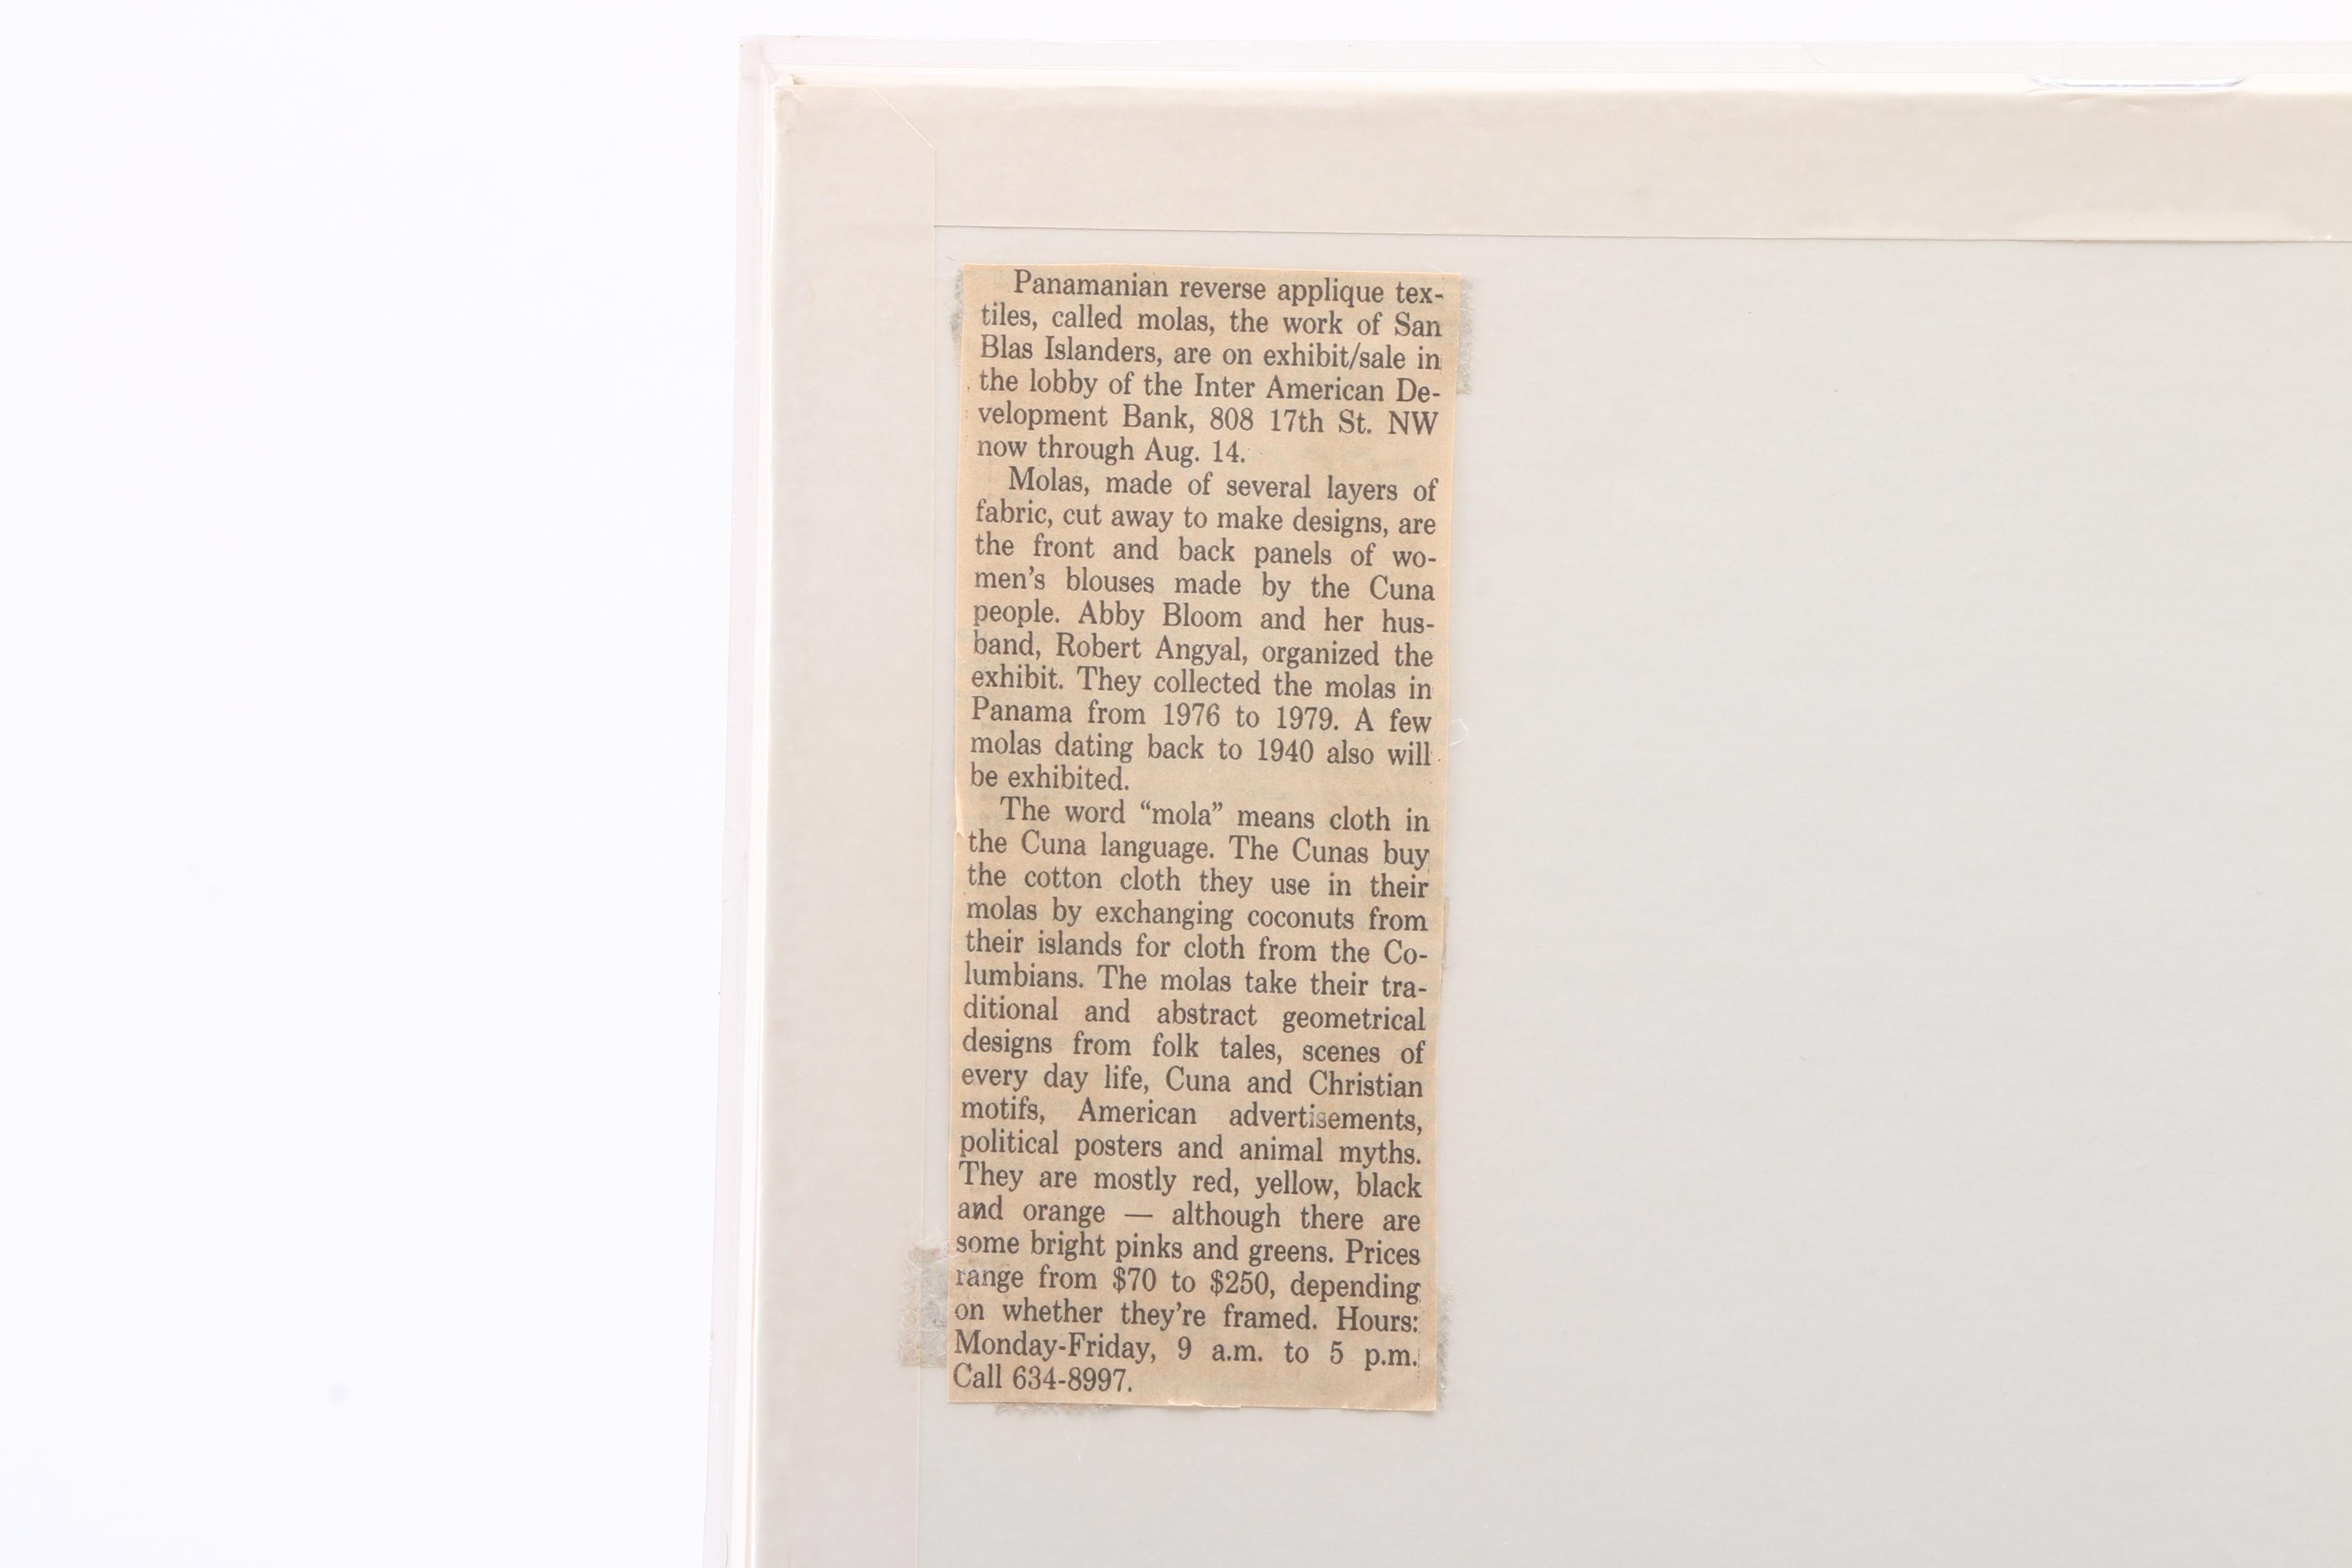 Panamanian reverse applique tex-
tiles, called molas, the work of San
Blas Islanders, are on exhibit/sale in
the lobby of the Inter American De-
velopment Bank, 808 17th St. NW
now through Aug. 14.
Molas, made of several layers of
fabric, cut away to make designs, are
the front and back panels of wo-
men's blouses made by the Cuna
people. Abby Bloom and her hus-
band, Robert Angyal, organized the
exhibit. They collected the molas in
Panama from 1976 to 1979. A few
molas dating back to 1940 also will
be exhibited.
The word “mola” means cloth in
the Cuna language. The Cunas buy
the cotton cloth they use in their
molas by exchanging coconuts from
their islands for cloth from the Co-
lumbians. The molas take their tra-
ditional and abstract geometrical
designs from folk tales, scenes of
every day life, Cuna and Christian
motifs, American advertisements,
political posters and animal myths.
They are mostly red, yellow, black
and orange — although there are
some bright pinks and greens. Prices
range from $70 to $250, depending
on whether they're framed. Hours:
Monday-Friday, 9 a.m. to 5 p.m.
Call 634-8997.